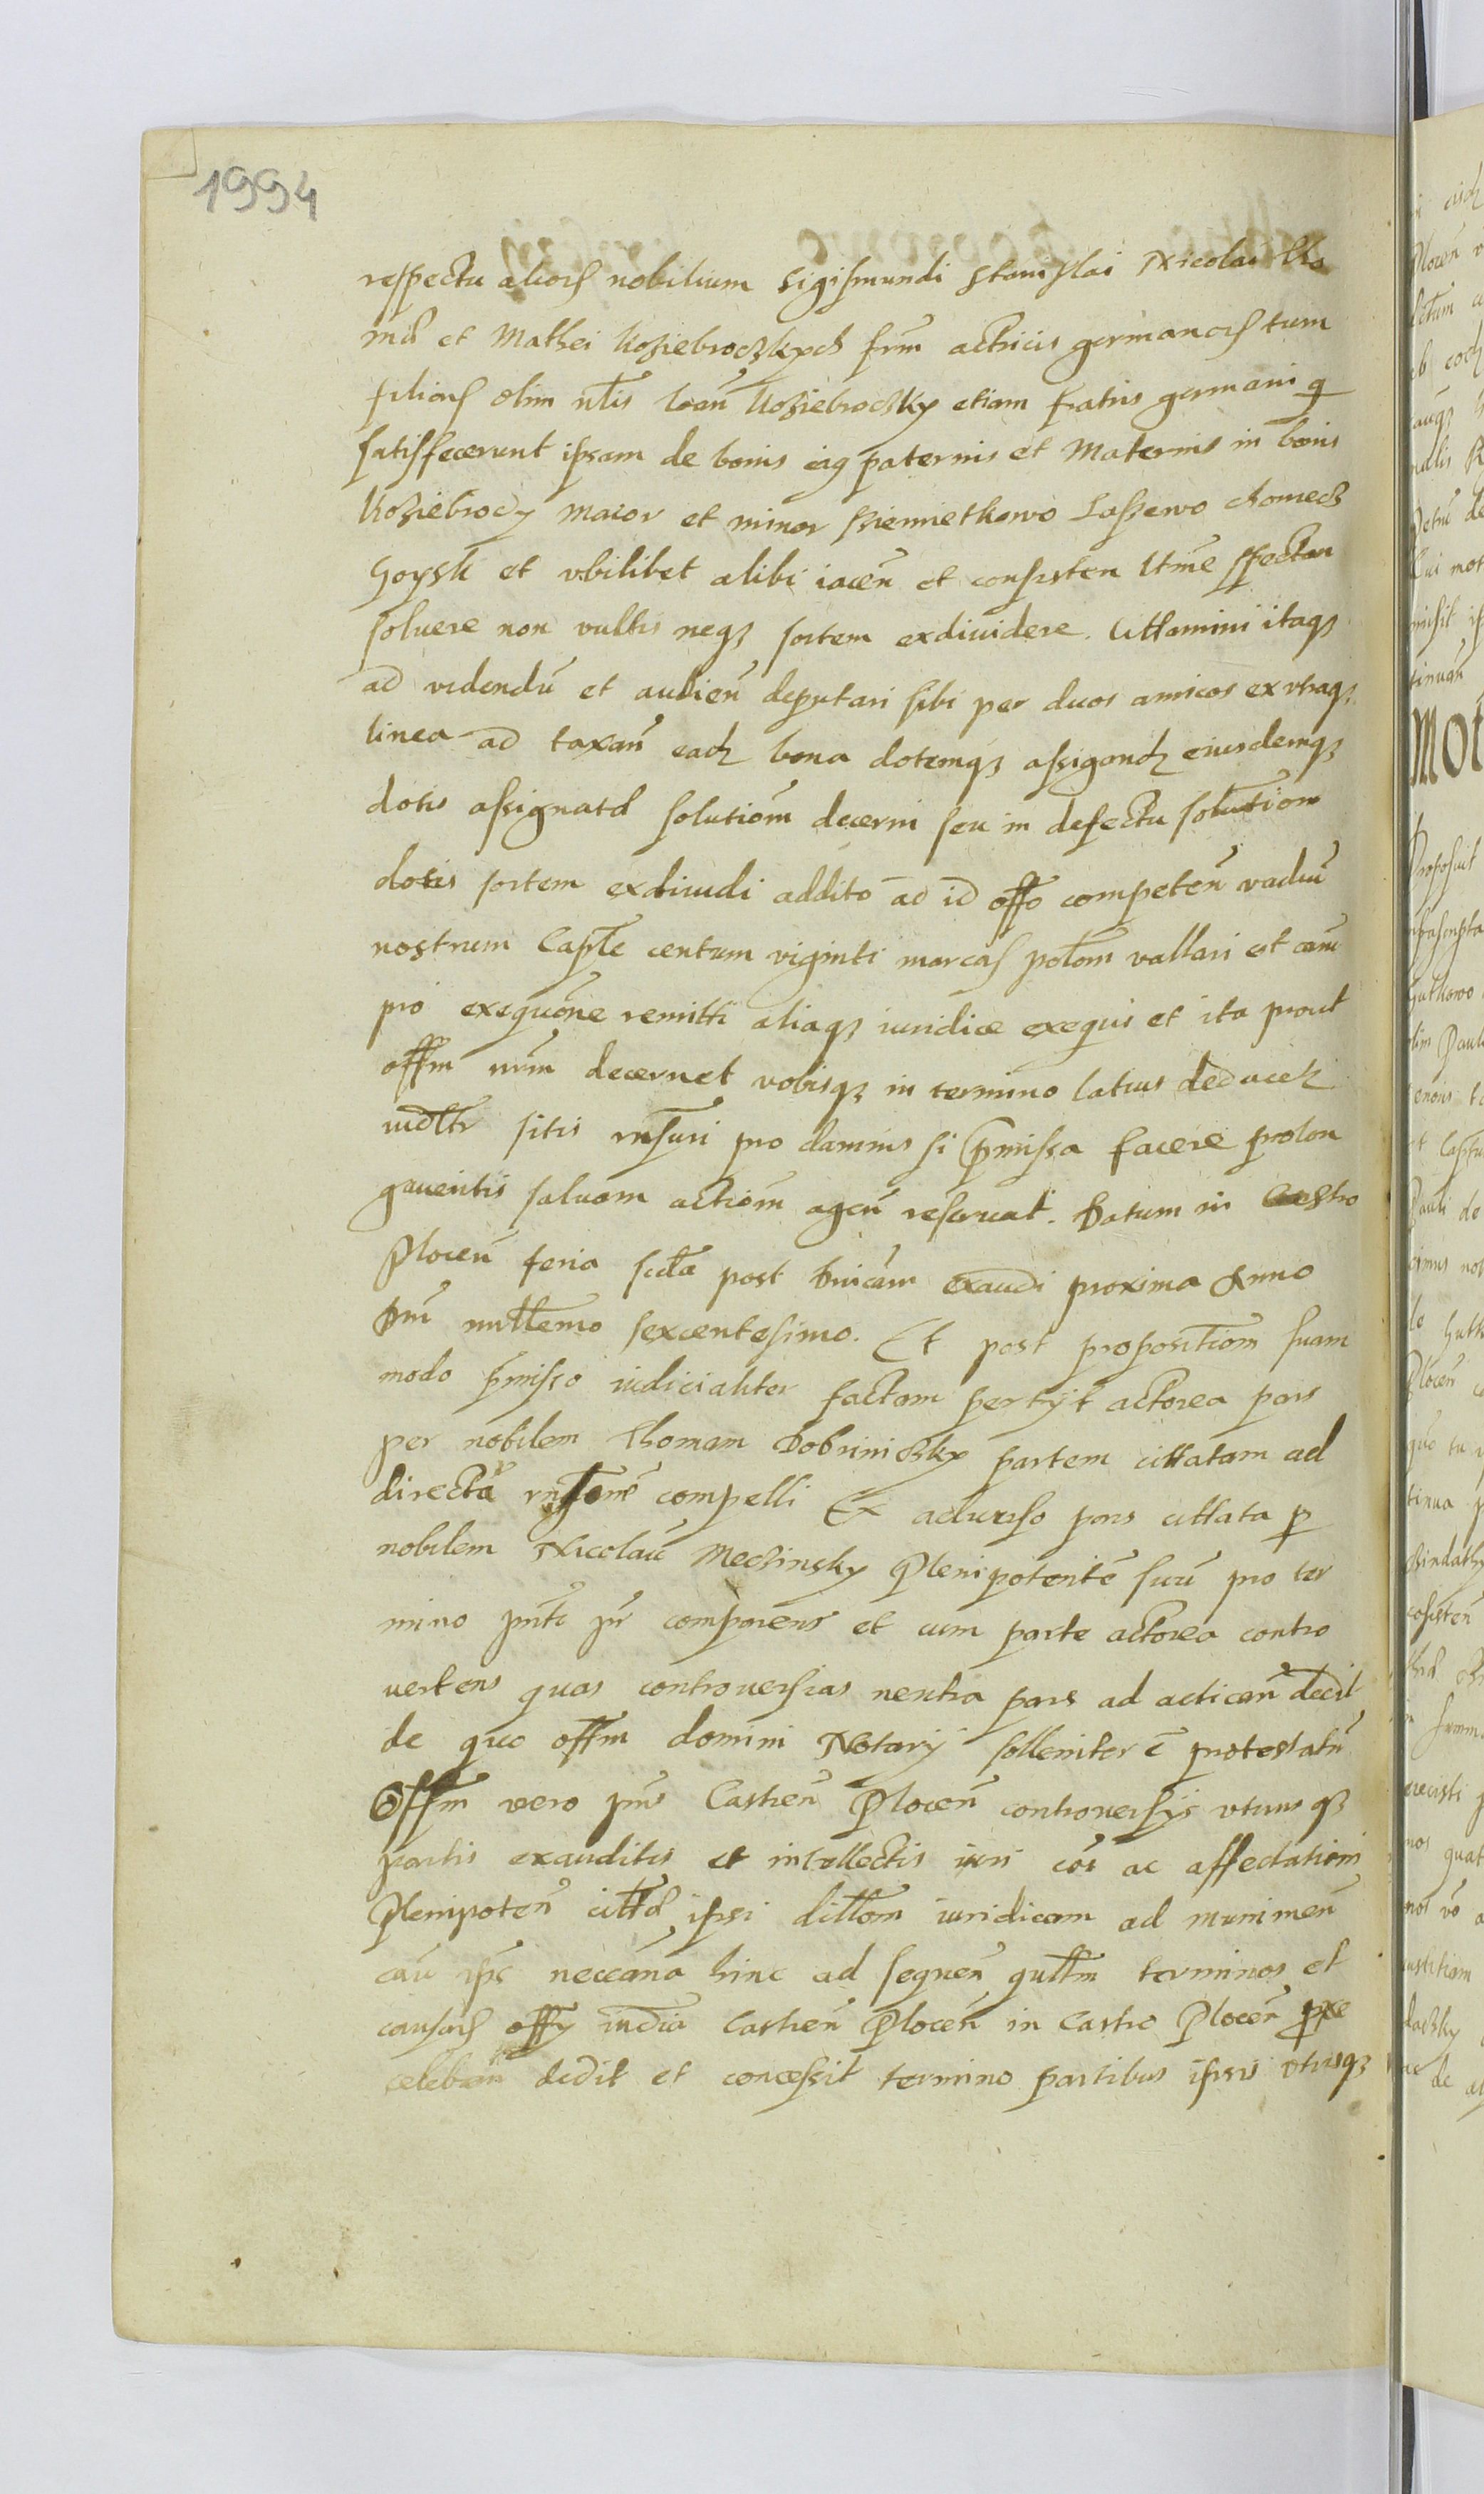 1994
respectu alior nobilium Sigismundi Stanislai Nicolai Tho
mæ et Mathei Koziebroczkych frm actricis germanor tum
filior olim nlis Ioan Koziebroczky etiam fratris germani q
satisfecerunt ipsam de bonis eiq paternis et Maternis in bonis
Koziebrody maior et minor Kiemietkowo Laszewo chomecz
Goysk et vbilibet alibi iacen et consisten ltme spectan
soluere non vultis neqz sortem exdiuidere. Cittamini itaqz
ad videndu et audien deputari sibi per duos amicos ex vtraqz
linea ad taxan eadz bona dotemqz assigandz eiusdemqz
dotis assignatæ solutiom decerni seu in defectu solutiom
dotis sortem exdiuidi addito ad id offo competen vadiu
nostrum Caple centum viginti marcas polom vallari et cam
pro exequone remitti aliaqz iuridice exequi et ita prout
offm nrm decernet vobisqz in termino latius deducetz
iudltr sitis rnsuri pro damnis si pmissa facere prolon
gaueritis saluam actiom agen reseruat. Datum in Castro
Plocen feria scda post dnicam exaudi proxima Anno
Dni milllemo sexcentesimo. Et post propositiom suam
modo pmisso iudicialiter factam pertijt actorea pars
per nobilem Thomam Dobrniczky partem cittatam ad
directa rnsione compelli Ex aduerso pars cittata p
nobilem Nicolau Meczinsky Plenipotente suu pro ter
mino pnti pr comparens et cum parte actorea contro
uertens quas controuersias neutra pars ad actican dedit
de quo offm domini Notarij solleniter e protestatu
Offm vero pns Castren Plocen controuersijs vtrius qz
partis exauditis et intellectis iuri coi ac affectationi
Plenipoten cittæ ipsi dillom iuridicam ad munimen
cau ips neccana hinc ad sequen qultm terminos et
causar offy iudcia Castren Plocen in Castro Plocen pxe
celebran dedit et concessit termino partibus ipsis vtrisqz